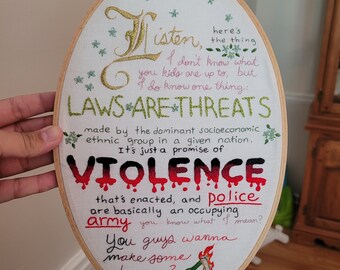 Listen,
here's
the thing
I don't know what
you kids are up to, but
I do know one thing:
LAWS ARE THREATS
made by the dominant socioeconomic
ethnic group in a given nation.
It's just a promise of
VIOLENCE
that's enacted, and police
are basically an occupying
army you know what I mean?
You guys wanna
make some